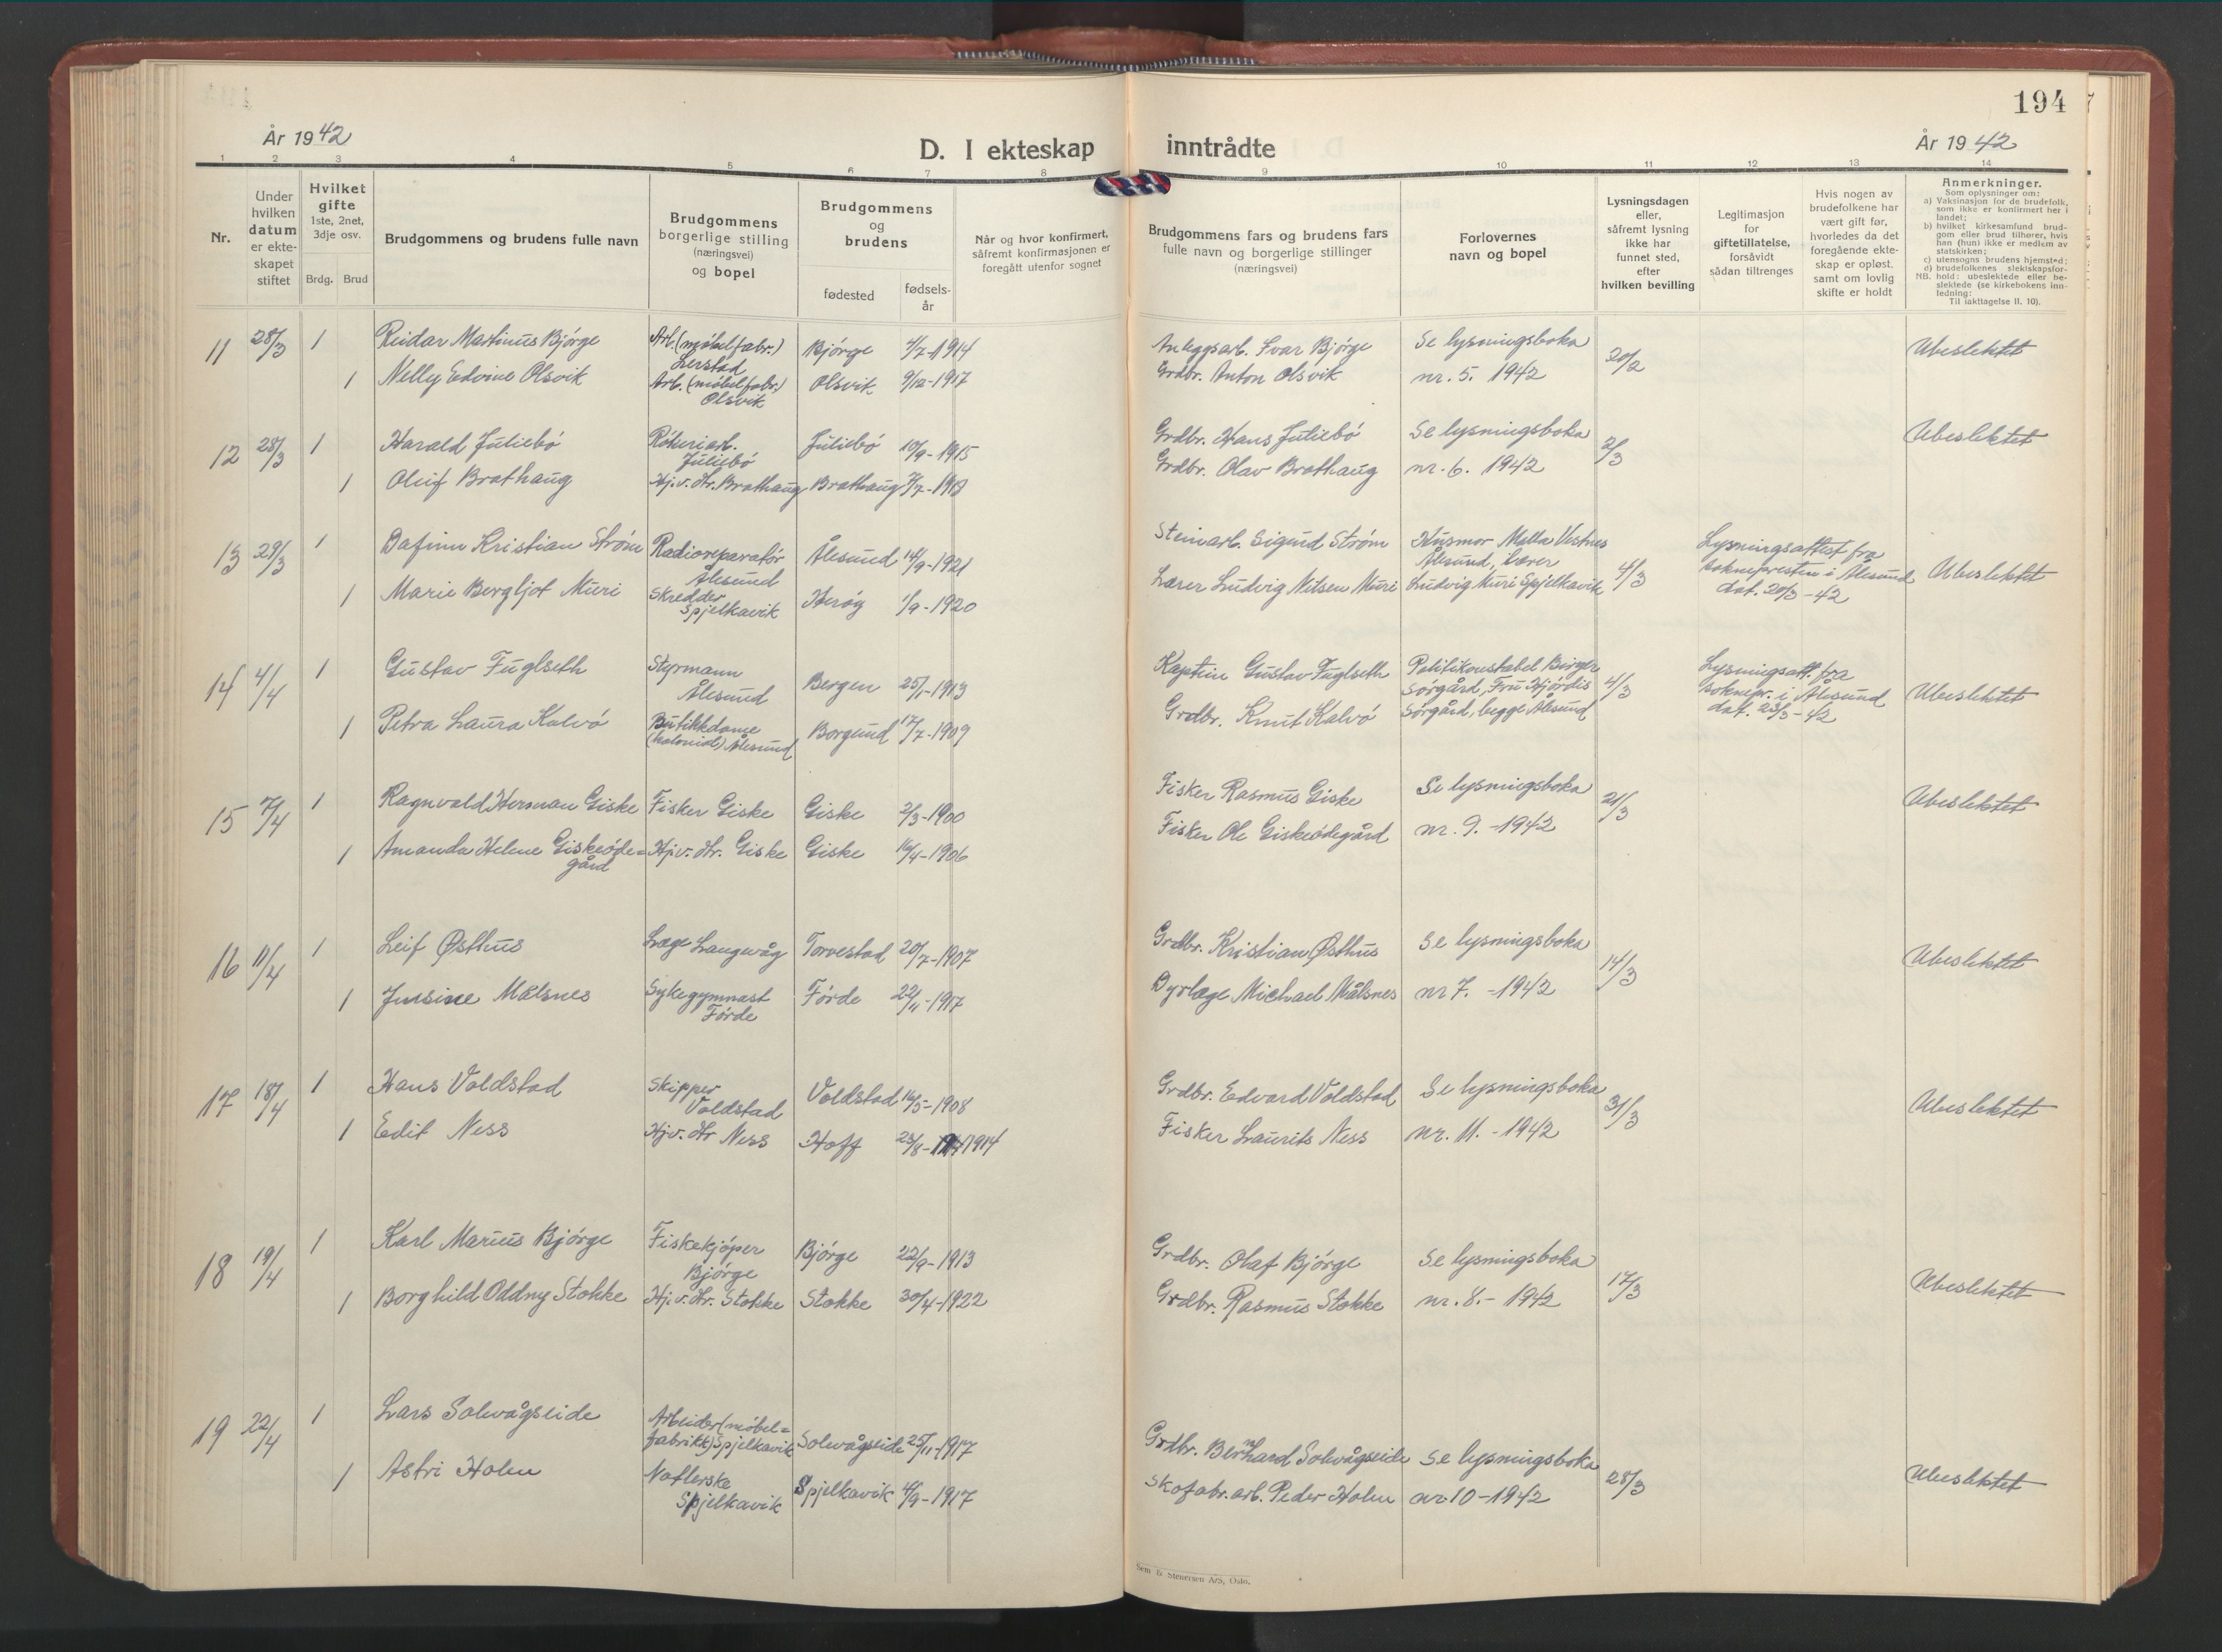 194
År 1942
D. I ekteskap inntrådte
År 1942
1 2 3 4 5 6 7 8 9 10 11 12 13 14
Nr.
Under
hvilken
datum
er ekte-
skapet
stiftet
Hvilket
gifte
1ste, 2net,
3dje osv.
Brdg. Brud
Brudgommens og brudens fulle navn
Brudgommens
borgerlige stilling
(næringsvei)
og bopel
Brudgommens
og
brudens
fødested
fødsels-
år
Når og hvor konfirmert,
såfremt konfirmasjonen er
foregått utenfor sognet
Brudgommens fars og brudens fars
fulle navn og borgerlige stillinger
(næringsvei)
Forlovernes
navn og bopel
Lysningsdagen
eller,
såfremt lysning
ikke har
funnet sted,
efter
hvilken bevilling
Legitimasjon
for
giftetillatelse,
forsåvidt
sådan tiltrenges
Hvis nogen av
brudefolkene har
vært gift før,
hvorledes da det
foregående ekte-
skap er opløst,
samt om lovlig
skifte er holdt
Anmerkninger.
Som oplysninger om:
a) Vaksinasjon for de brudefolk,
som ikke er konfirmert her i
landet;
b) hvilket kirkesamfund brud-
gom eller brud tilhører, hvis
han (hun) ikke er medlem av
statskirken;
c) utensogns brudens hjemsted;
d) brudefolkenes slektskapsfor-
NB. hold: ubeslektede eller be-
slektede (se kirkebokens inn-
ledning:
Til iakttagelse II. 10).
11 28/3 1 Reidar Martinus Bjørge Arb. (møbelfabr.) Lerstad Bjørge 4/7-1914 Anleggsarb. Ivar Bjørge Se lysningsboka 20/2 Ubeslektet
1 Nelly Edvine Olsvik Arb. (møbelfabr.) Olsvik Olsvik 9/12-1917 Grdbr. Anton Olsvik nr. 5. 1942
12 28/3 1 Harald Juliebø Røkeriarb. Juliebø Juliebø 10/9-1915 Grdbr. Hans Juliebø Se lysningsboka 2/3 Ubeslektet
1 Brathaug Hj.v. Hr. Brathaug Brathaug Grdbr. Olav Brathaug nr. 6. 1942
13 29/3 1 Dafinn Kristian Strøm Radioreparatør Ålesund Ålesund 14/9-1921 Steinarb. Sigurd Strøm Husmor Vestnes
Ålesund, lærer
4/3 Lysningsattest fra
sognepresten i Ålesund
dat. 20/3-42 Ubeslektet
1 Marie Bergljot Muri Skredder Spjelkavik Herøy 1/9-1920 Lærer Ludvig Nilsen Muri Ludvig Muri Spjelkavik
14 4/4 1 Gustav Fuglseth Styrmann Ålesund Bergen 25/1-1913 Kaptein Gustav Fuglseth Politikonstabel Birger
Sørgård, Fru Hjørdis
4/3 Lysningsatt. fra
soknepr. i Ålesund
dat. 23/3-42 Ubeslektet
1 Petra Laura Kalvø Butikkdame (kolonial) Ålesund Borgund 17/7-1909 Grdbr. Knut Kalvø Sørgård, begge Ålesund
15 7/4 1 Ragnvald Herman Giske Fisker Giske Giske 2/3-1900 Fisker Rasmus Giske Se lysningsboka 21/3 Ubeslektet
1 Amanda Helene Giskeøde=
gård Hj.v. Hr. Giske Giske 16/4-1906 Fisker Ole Giskeødegård nr. 9. -1942
16 11/4 1 Leif Østhus Læge Langevåg Torvestad 20/7-1907 Grdbr. Kristian Østhus Se lysningsboka 14/3 Ubeslektet
1 Jensine Målsnes Sykegymnast Førde Førde 22/11-1917 Dyrlæge Michael Målsnes nr 7. -1942
17 18/4 1 Hans Voldstad Skipper Voldstad Voldstad 16/5-1908 Grdbr. Edvard Voldstad Se lysningsboka 31/3 Ubeslektet
1 Edit Ness Hj.v. Hr Ness Hoff 23/8- 1914 Fisker Laurits Ness nr. 11. -1942
18 19/4 1 Karl Marius Bjørge Fiskekjøper Bjørge Bjørge 22/9-1913 Grdbr. Olaf Bjørge Se lysningsboka 17/3 Ubeslektet
1 Borghild Oddny Stokke Hj.v. Hr. Stokke Stokke 30/4-1922 Grdbr. Rasmus Stokke nr. 8. - 1942
19 22/4 1 Lars Solevågseide Arbeider (møbel=
fabrikk) Spjelkavik Solevågseide 25/11-1917 Grdbr. Bernhard Solevågseide Se lysningsboka 28/3 Ubeslektet
1 Astri Holen Natlerske Spjelkavik Spjelkavik 4/9-1917 Skofabr.arb. Peder Holen nr 10 - 1942
Sem & Stenersen A/S, Oslo.